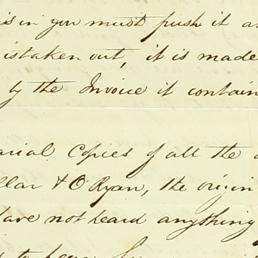 is in you must push it a
istaken out, it is made
y the Invoice it contain
arial Copies of all the
llar & O Ryan, the origin
have not heard anything